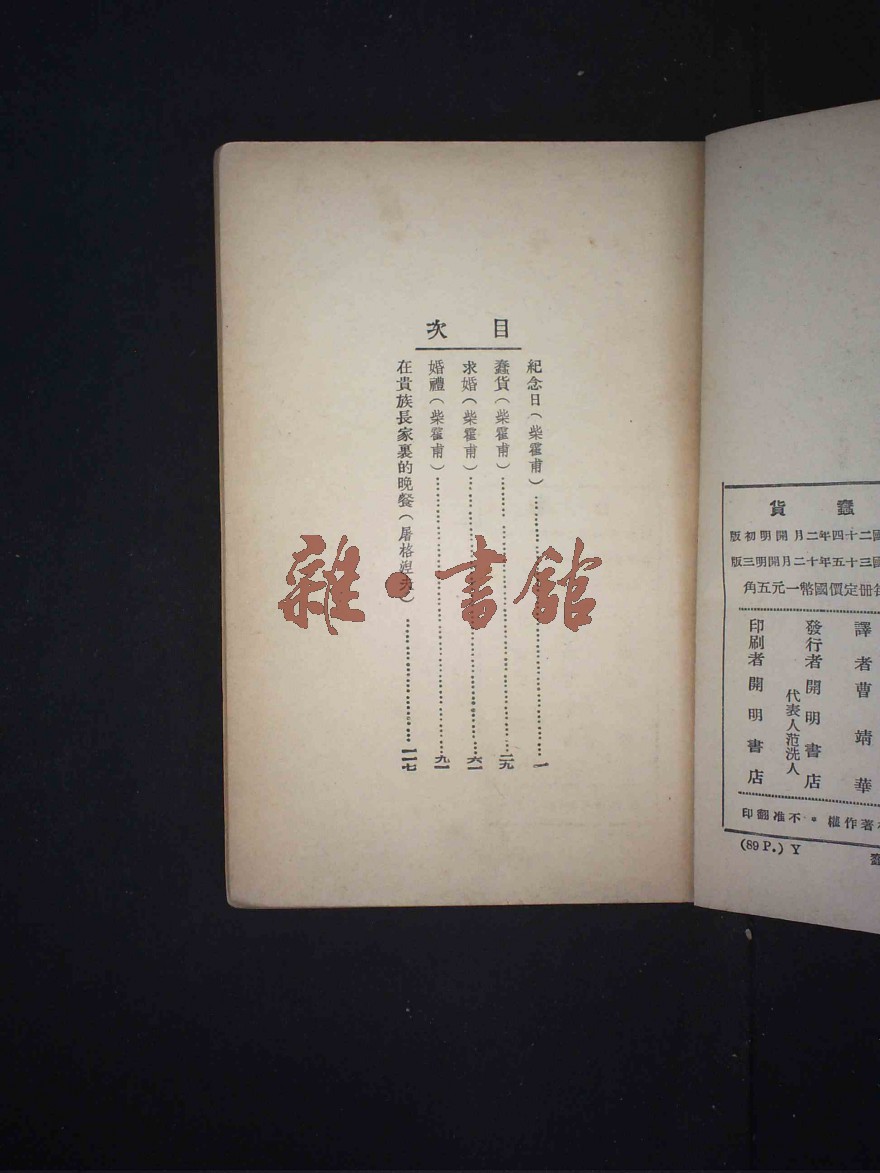 目次
紀念日（柴霍甫）……一
蠢貨（柴霍甫）……二九
求婚（柴霍甫）……六一
婚禮（柴霍甫）……九一
在貴族長家裏的晚餐（屠格涅夫）……一一七
雜·書館
蠢貨
國二十四年二月開明初版
國三十五年十二月開明三版
每冊定價國幣一元五角
譯者 曹靖華
發行者 開明書店
代表人范洗人
印刷者 開明書店
著作權·不准翻印
(89 P.) Y
蠢